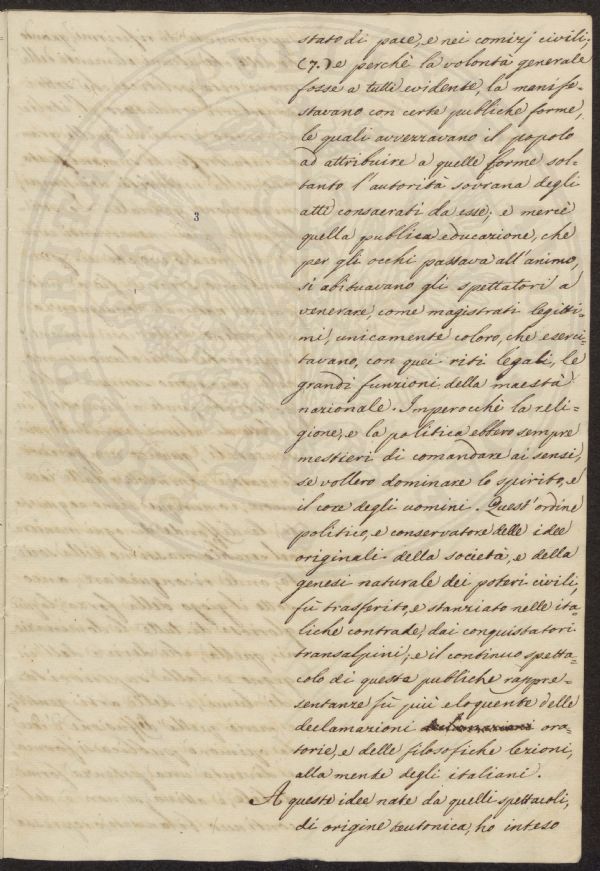 stato di pace, e nei comizj civili;
(7.) e perchè la volontà generale
fosse a tutti evidente, la manife-
stavano con certe publiche forme,
le quali avvezzavano il popolo
ad attribuire a quelle forme sol-
tanto l'autorità sovrana degli
3
atti consacrati da esse; e mercè
quella publica educazione, che
per gli occhi passava all'animo,
si abituavano gli spettatori a
venerare, come magistrati legitti-
mi, unicamente coloro, che eserci-
tavano, con quei riti legali, le
grandi funzioni della maestà
nazionale. Imperocchè la reli-
gione, e la politica ebbero sempre
mestieri di comandare ai sensi,
se vollero dominare lo spirito, e
il core degli uomini. Quest'ordine
politico, e conservatore delle idee
originali della società, e della
genesi naturale dei poteri civili,
fù trasferito, e stanziato nelle ita-
liche contrade, dai conquistatori
transalpini; e il continuo spetta-
colo di queste publiche rappre-
sentanze fù più eloquente delle
declamazioni ora-
torie, e delle filosofiche lezioni,
alla mente degli italiani.
A queste idee nate da quelli spettacoli,
di origine teutonica, ho inteso